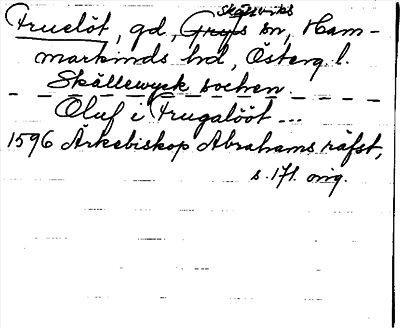 Skällviks
Fruelöt, gd, Gryts sn, Ham-
markinds hd, Österg. l.
Skällewyck sochen
Oluf i Frugalööt ...
1596 Ärkebiskop Abrahams räfst,
s. 171. orig.